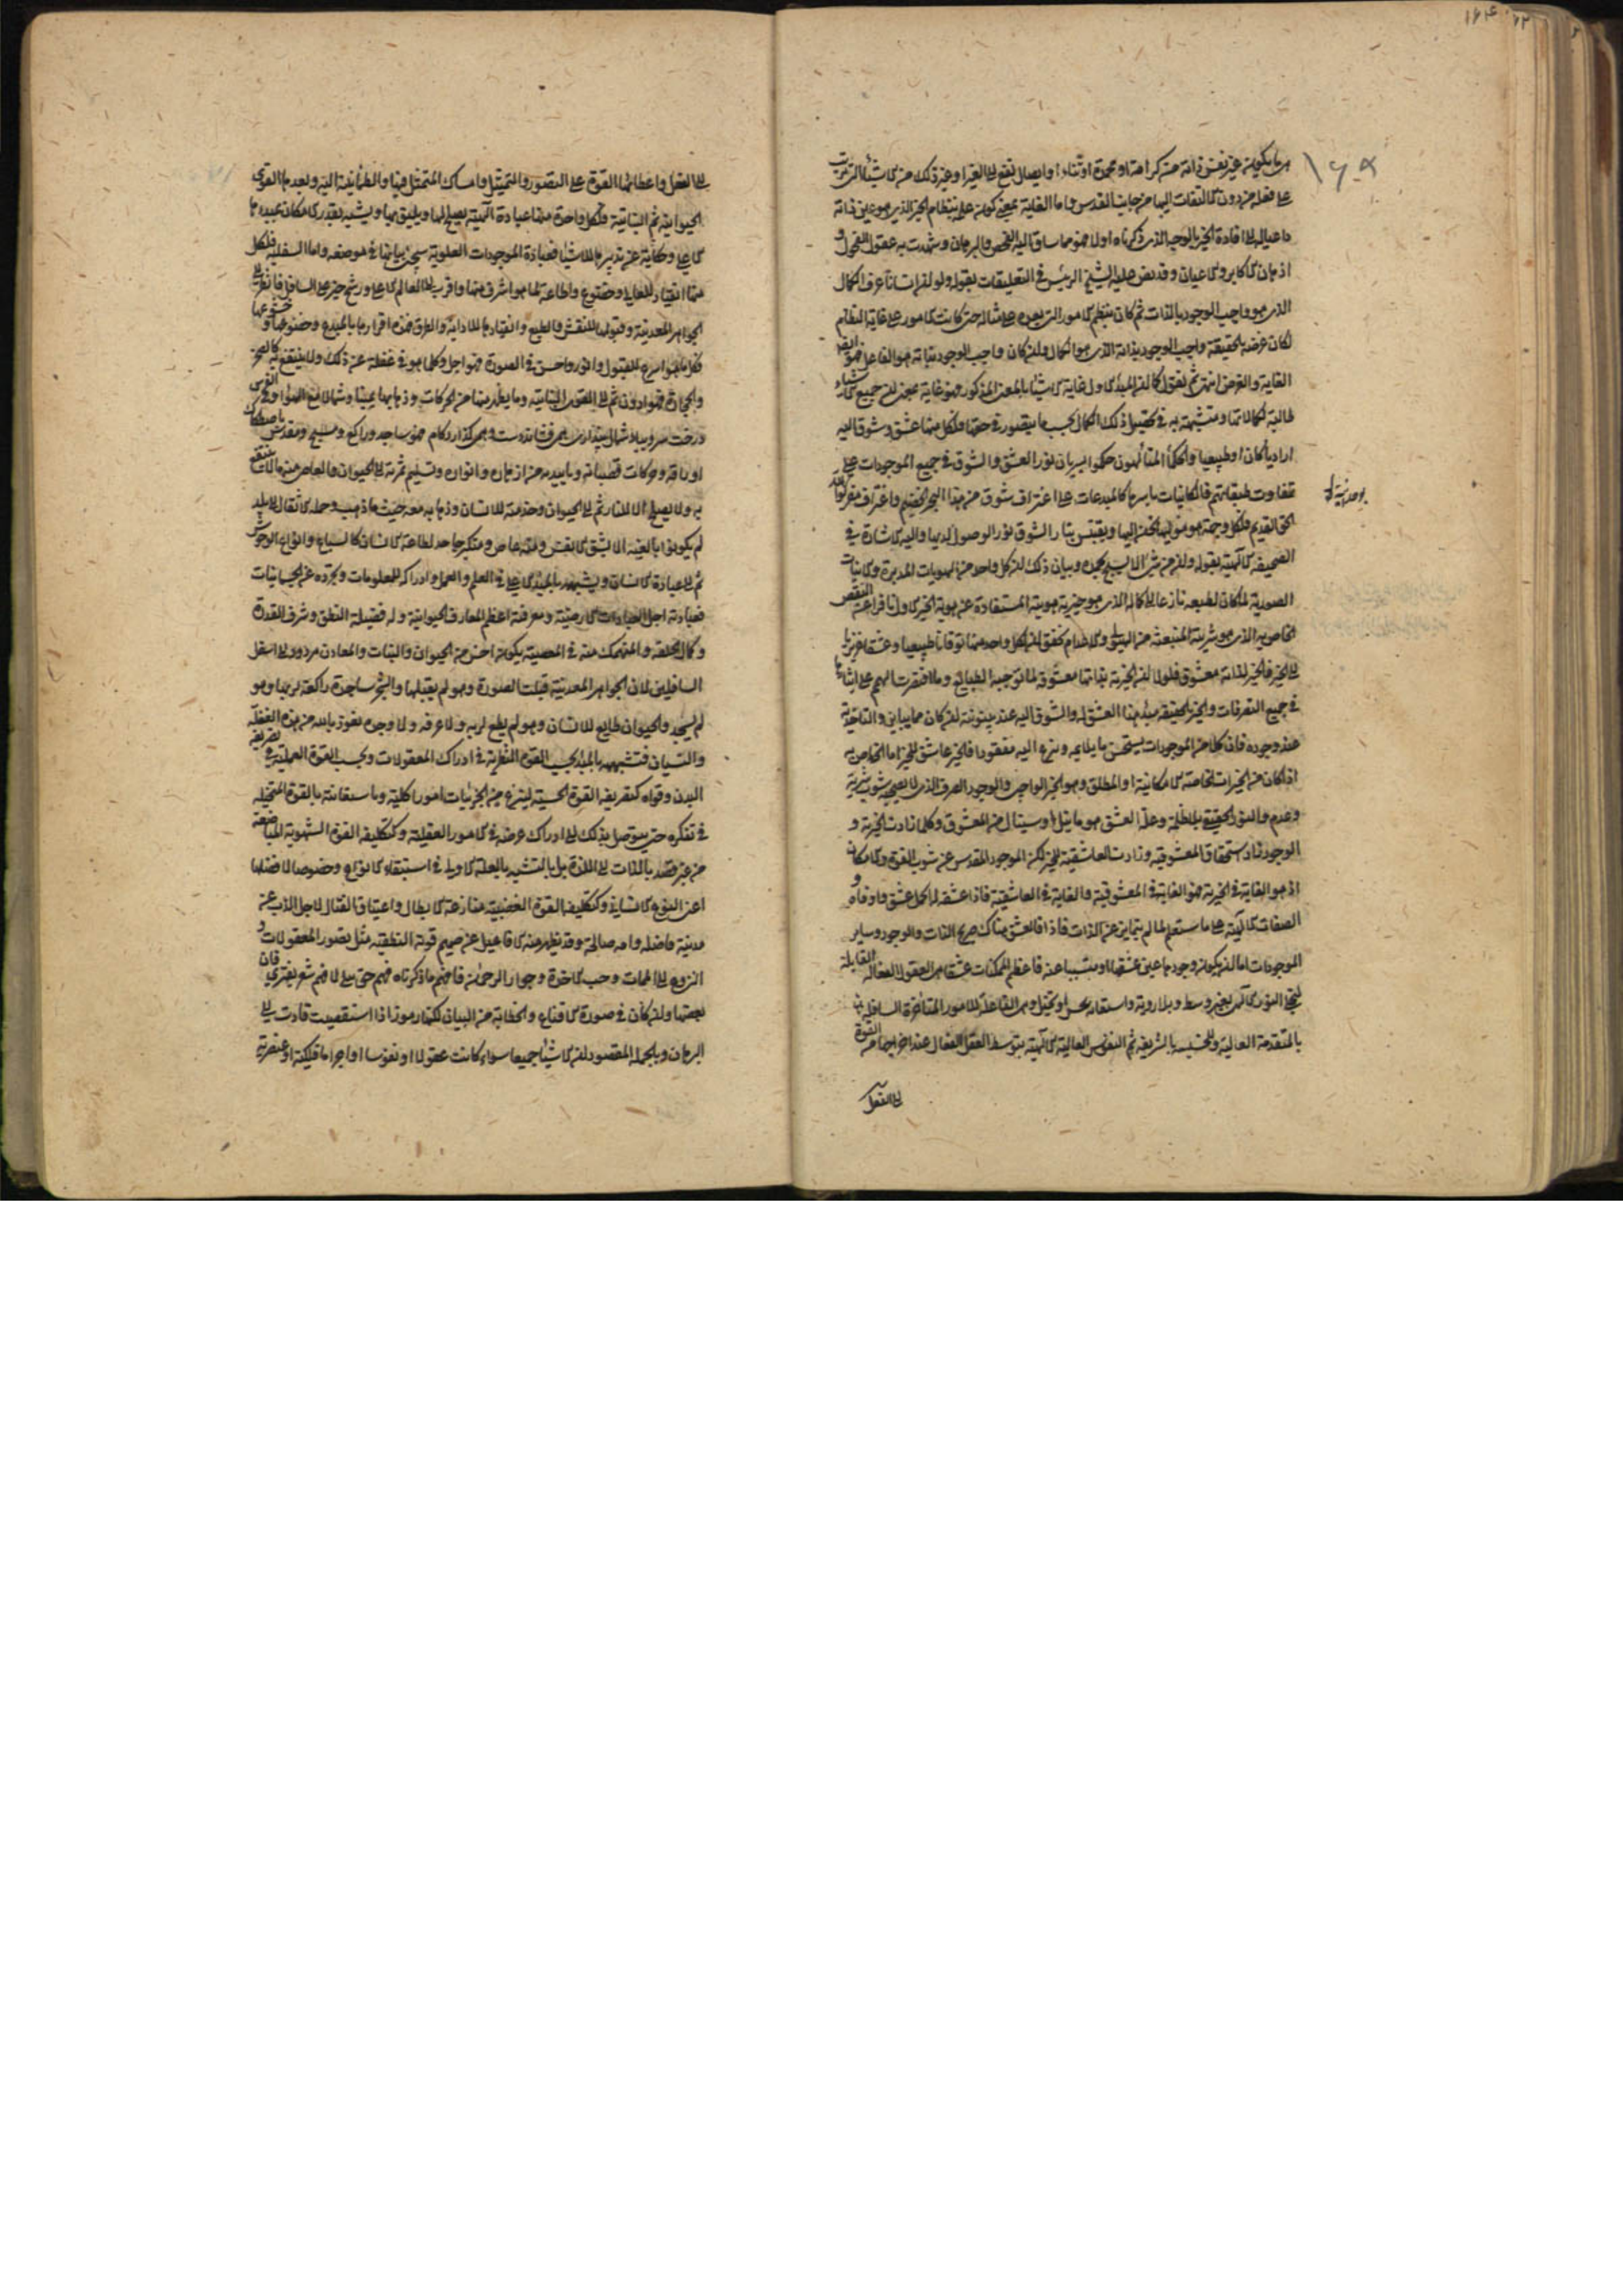 ۱۶۴ ۶۲
۱۶۰۹
ما يكون غير نفس ذاته من كرامة او محمدة او ثناء او ايصال نفع الى الغير او غير ذلك من الاشياء التى تترتب
على فعله من دون الالتفات اليها من جانب القدس واما الغاية بمعنى كون علمه بنظام الخير الذى هو عين ذاته
داعيا له الى افادة الخير بالوجه الذى ذكرناه اولا فهو مما ساق اليه الفحص والبرهان وشهدت به عقول الفحول و
اذهان الاكابر والاعيان وقد نص عليه الشيخ الرئيس فى التعليقات بقوله ولو ان انسانا عرف الكمال
الذى هو واجب الوجود بالذات ثم كان ينظم الامور التى بعده على مثاله حتى كانت الامور على غاية النظام
لكان غرضه بالحقيقة واجب الوجود بذاته الذى هو الكمال وان كان واجب الوجود بذاته هو الفاعل فهو ايضا
الغاية والغرض انتهى ثم نقول كما ان المبدأ الاول غاية الاشياء بالمعنى المذكور فهو غاية بمعنى ان جميع الاشياء
طالبة لكمالاتها ومتشبهة به فى تحصيل ذلك الكمال بحسب ما يتصور فى حقها فلكل منها عشق وشوق اليه
اراديا كان او طبيعيا والحكماء المتألهون حكموا بسريان نور العشق والشوق فى جميع الموجودات على
تفاوت طبقاتهم فالكائنات باسرها كالمبدعات على اغتراف شوق من هذا البحر الخضم واعتراف مقر
الحق القديم فلكل وجهة هو موليها يحن اليها ويقتبس بنار الشوق نور الوصول لديها واليه الاشارة فى
الصحيفة الالهية بقوله وان من شئ الا يسبح بحمده وبيان ذلك ان كل واحد من الهويات المدبرة والكائنات
الصورية لما كان لطبعه نازعا الى كماله الذى هو خيرية هويته المستفادة عن هوية الخير الاول نافرا عن النقص
الخاص به الذى هو شريته المنبعثة من الهيولى والاعدام تحقق ان لكل واحد منها توقانا طبيعيا وعشقا غريزيا
الى الخير فالخير لذاته معشوق فلولا ان الخيرية بذاتها معشوقة لما توجه الطبائع ولما اقتصرت الهمم على ايثارها
فى جميع التصرفات والخير بالحقيقة مبدأ هذا العشق له والشوق اليه عند بينونته ان كان مما يباين والتأحد به
عند وجوده فان كلا من الموجودات يستحسن ما يلائمه وينزع اليه مفقودا فالخير عاشق للخير اما الخاص به
اذ كان من الخيرات الخاصة الامكانية او المطلق وهو الخير الواجبى والوجود الصرف الذى لا يصحبه شوب شرية
وعدم والنور الحقيقى بلا ظلمة وعلة العشق هو ما ينل او سينال من المعشوق وكلما زادت الخيرية و
الوجود زاد استحقاق المعشوقية وزادت العاشقية للخير لكن الموجود المقدس عن شوب القوة والامكان
اذ هو الغاية فى الخيرية فهو الغاية فى المعشوقية والغاية فى العاشقية فاذا عشقه له اكمل عشق واوفاه و
الصفات الالهية على ما ستعلم لما لم يتمايز عن الذات فاذا فالعشق هناك صريح الذات والوجود وساير
الموجودات اما ان يكون وجودها عين عشقها او متسببا عنه فاعظم الممكنات عشقا هى العقول الفعالة القابلة
لتجلى النور الالهى بغير وسط وبلا روية واستعانة بحس او تخيل وهى الفاعلة للامور المتأخرة السافلة
بالمتقدمة العالية وللخسيسة بالشريفة ثم النفوس العالية الالهية بتوسط العقل الفعال عند اخراجها من القوة
الى الفعل
الى الفعل واعطائها القوة على التصور والتمثل وامساك المتمثل فيها والطمأنينة اليه وبعدها القوى
الحيوانية ثم النباتية ولكل واحدة منها عبادة الهية يصلح لها ويليق بها ويشبه بقدر الامكان بمبدءها
الاعلى وحكاية عن تدبيرها للاشياء فعبادة الموجودات العلوية سيجئ بيانها فى موضعه واما السفلية فلكل
منها انقياد للعالى وخضوع واطاعة لما هو اشرف منها واقرب الى العالم الاعلى ورشح خير على السافل فانظر الى
الجواهر المعدنية وقبولها للنقش والطبع وانقيادها للاذابة والطرق فهذه اقرارها بالمبدع وخضوعها وخشوعها
فكل ما هو اسرع للقبول وانور واحسن فى الصورة فهو اجل وكلما هو فى غفلة عن ذلك ولا ينتفع به كالصخر
والحجارة فهو ادون ثم الى القوى النباتية وما يظهر منها من الحركات وذهابها يمينا وشمالا مع الهواء وفى الفرس
درخت سرو بباد شمال پندارى همى فشاند دست و همى گذارد گام فهو ساجد وراكع ومسبح ومقدس باصطكاك
اوراقه وحركات قضبانه وما يبديه من ازهاره وانواره وتسليم ثمرته الى الحيوان والعاصى منه ما لا ينتفع
به ولا يصلح الا للنار ثم الى الحيوان وخدمته للانسان وذهابه معه حيث ما ذهب وحمله الاثقال الى بلد
لم يكونوا بالغيه الا بشق الانفس ومنه عاص ومتكبر جاحد لطاعة الانسان كالسباع وانواع الوحوش
ثم الى عبادة الانسان وتشبهه بالمبدأ الاعلى فى العلم والعمل وادراكه للمعلومات وتجرده عن الجسمانيات
فعبادته اجل العبادات الارضية ومعرفته اعظم المعارف الحيوانية وله فضيلة النطق وشرف القدرة
وكمال الخلقة والمنهمك منه فى المعصية يكون اخس من الحيوان والنبات والمعادن مردود الى اسفل
السافلين لان الجواهر المعدنية قبلت الصورة وهو لم يقبلها والشجر ساجدة راكعة لربها وهو
لم يسجد والحيوان طايع للانسان وهو لم يطع لربه ولا عرفه ولا وحده نعوذ بالله من هذه الغفلة
والنسيان فتشبهه بالمبدأ بحسب القوة النظرية فى ادراك المعقولات وبحسب القوة العملية فى تصريف
البدن وقواه كتصريفه القوة الحسية لينتزع من الجزئيات امورا كلية وباستعانته بالقوة المتخيلة
فى تفكره حتى يتوصل بذلك الى ادراك غرضه فى الامور العقلية وكتكليفه القوة الشهوية المباضعة
من غير قصد بالذات الى اللذة بل بالتشبه بالعلة الاولى فى استبقاء الانواع وخصوصا افضلها
اعنى النوع الانسانى وكتكليفه القوة الغضبية منازعة الابطال واعتناق القتال لاجل الذب عن
مدينة فاضلة وامة صالحة وقد يظهر منه الافاعيل عن صميم قوته النطقية مثل تصور المعقولات و
النزوع الى المهمات وحب الاخرة وجوار الرحمن فافهم ما ذكرناه فهم حق على لا فهم شعر يفترى فان
بعضها وان كان فى صورة الاقناع والخطابة من البيان لكنها رموز اذا استقصيت قادت الى
البرهان وبالجملة المقصود ان الاشياء جميعا سواء كانت عقولا او نفوسا او اجراما فلكية او عنصرية